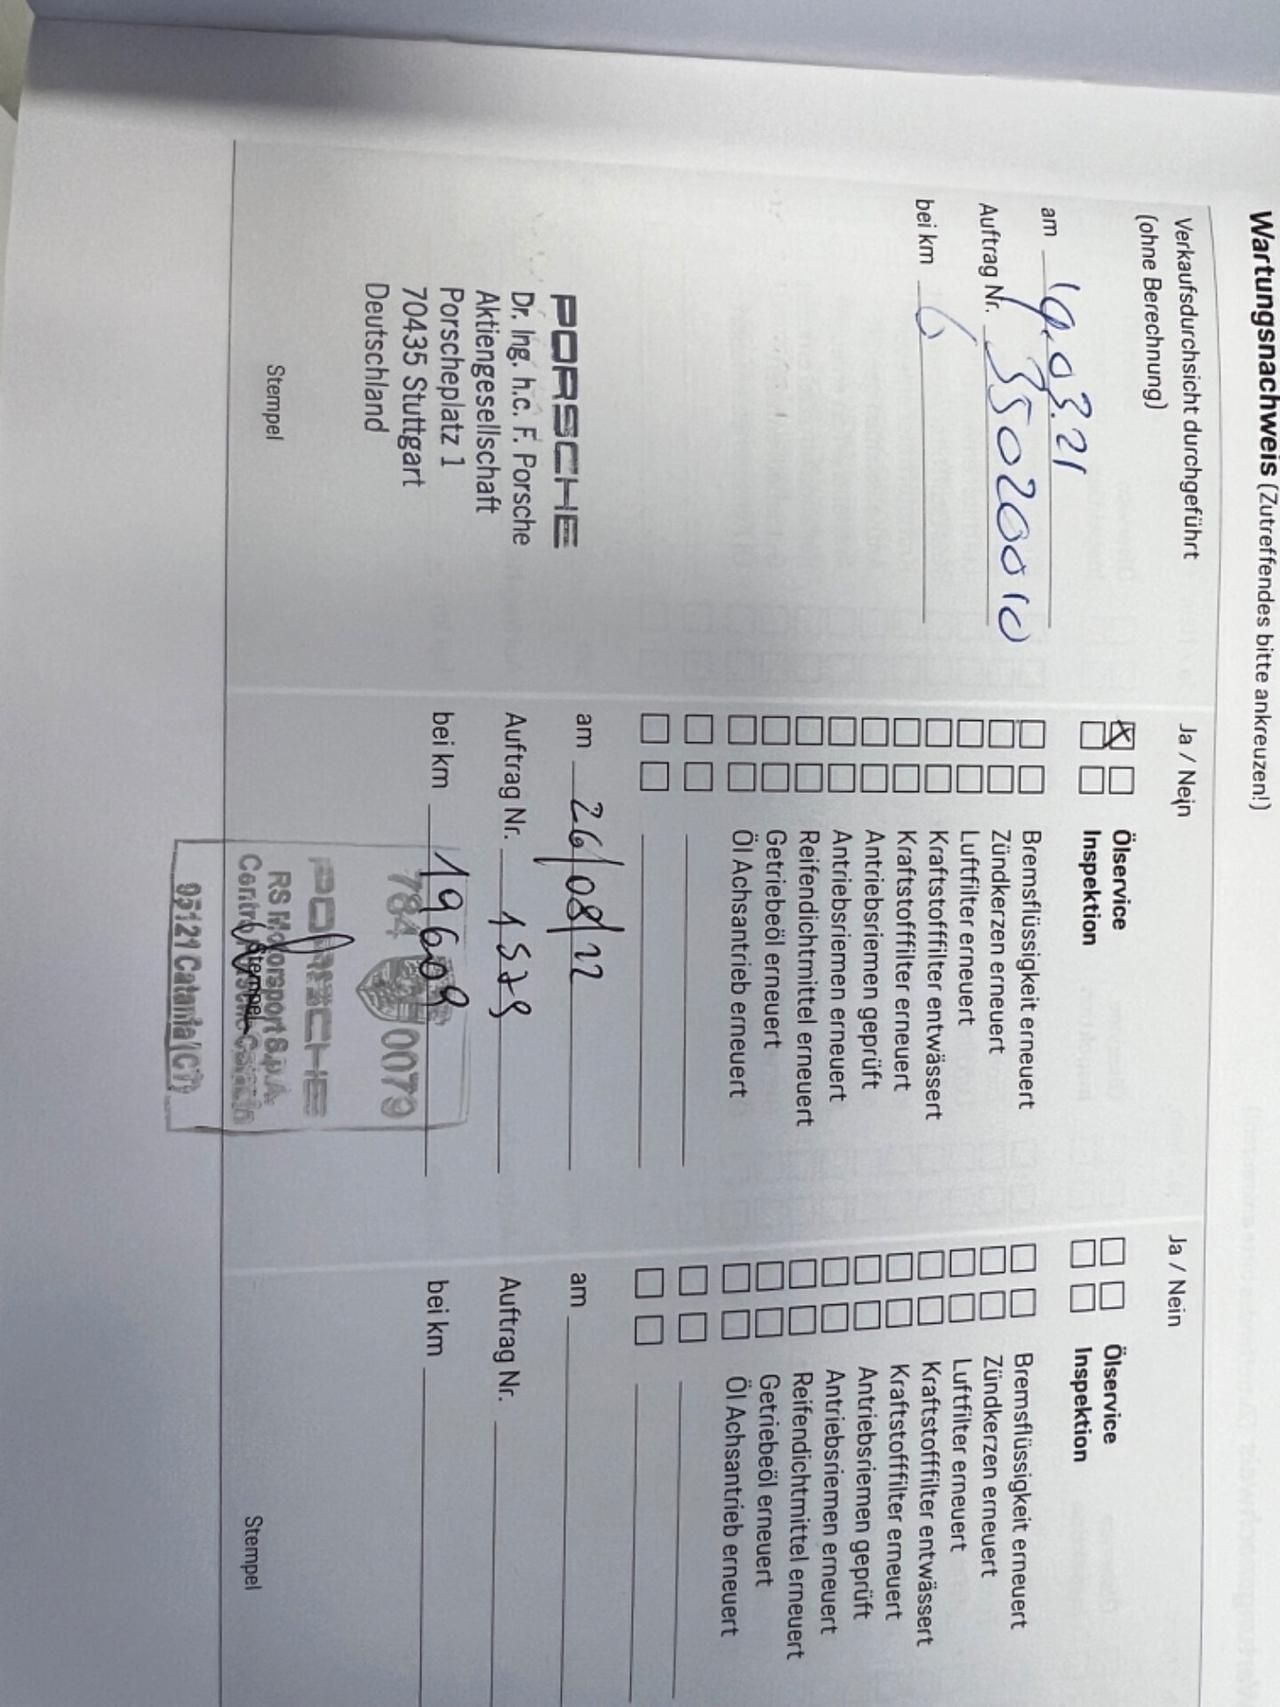 Wartungsnachweis (Zutreffendes bitte ankreuzen!)
Verkaufsdurchsicht durchgeführt
(ohne Berechnung)
am 19.03.21
Auftrag Nr. 35020010
bei km 6
PORSCHE
Dr. Ing. h.c. F. Porsche
Aktiengesellschaft
Porscheplatz 1
70435 Stuttgart
Deutschland
Stempel
Ja / Nein
Ölservice
Inspektion
Bremsflüssigkeit erneuert
Zündkerzen erneuert
Luftfilter erneuert
Kraftstofffilter entwässert
Kraftstofffilter erneuert
Antriebsriemen geprüft
Antriebsriemen erneuert
Reifendichtmittel erneuert
Getriebeöl erneuert
Öl Achsantrieb erneuert
am 26/08/22
Auftrag Nr. 1579
bei km 19609
784 0079
PORSCHE
RS Motorsport S.p.A.
Centro Porsche Catania
Stempel
95121 Catania (CT)
Ja / Nein
Ölservice
Inspektion
Bremsflüssigkeit erneuert
Zündkerzen erneuert
Luftfilter erneuert
Kraftstofffilter entwässert
Kraftstofffilter erneuert
Antriebsriemen geprüft
Antriebsriemen erneuert
Reifendichtmittel erneuert
Getriebeöl erneuert
Öl Achsantrieb erneuert
am
Auftrag Nr.
bei km
Stempel